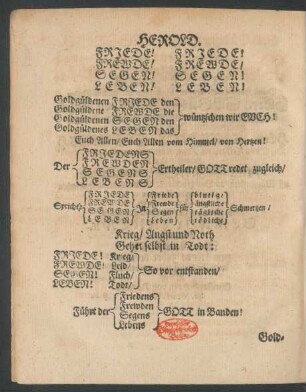 HEROLD.
FRIEDE! FRIEDE!
FREWDE! FREWDE!
SEGEN! SEGEN!
LEBEN! LEBEN!
Goldgüldenen FRIEDE den
Goldgüldene FREWDE die
Goldgüldenen SEGEN den
Goldgüldenes LEBEN das
wüntschen wir EUCH!
Euch Allen/ Euch Allen vom Himmel/ von Hertzen!
Der
FRIEDENS
FREWDEN
SEGENS
LEBENS
Ertheiler/ GOTT redet zugleich/
Spricht/
FRIEDE/
FREWDE
SEGEN/
LEBEN/
Ja/
Friede/
Freude
Segen
Leben/
für
blutige
ängstliche
klägliche
tödliche
Schmertzen!
Krieg/ Angst und Noth
Gehet selbst in Todt:
FRIEDE! Krieg/
FREWDE! Leid/
SEGEN! Fluch/
LEBEN! Todt/
So vor entstanden/
Führt der
Friedens
Frewden
Segens
Lebens
GOTT in Banden!
Gold-